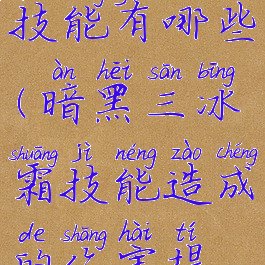 技能有哪些
àn hēi sān bīng
(暗黑三冰
shuāng jì néng zào chéng
霜技能造成
de shāng hài tí
的伤害提